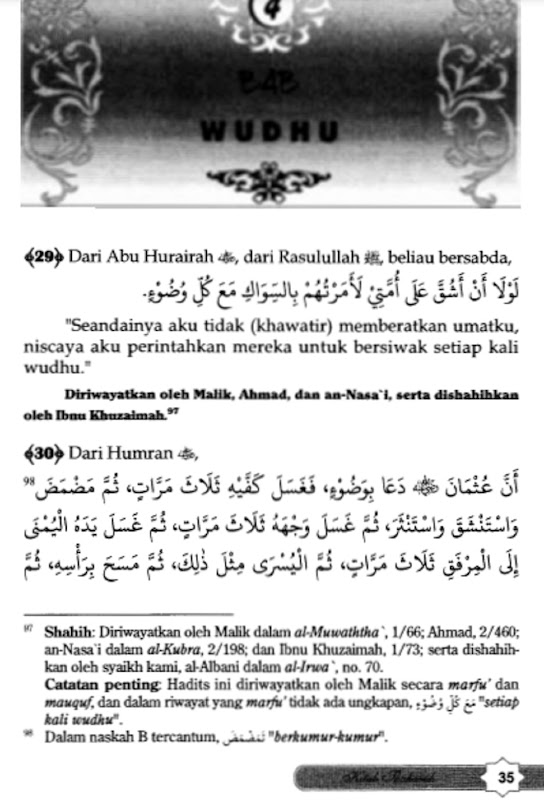 4
BAB
WUDHU
﴾29﴿ Dari Abu Hurairah ﷺ, dari Rasulullah ﷺ, beliau bersabda,
لَوْلَا أَنْ أَشُقَّ عَلَى أُمَّتِيْ لَأَمَرْتُهُمْ بِالسِّوَاكِ مَعَ كُلِّ وُضُوْءٍ.
"Seandainya aku tidak (khawatir) memberatkan umatku,
niscaya aku perintahkan mereka untuk bersiwak setiap kali
wudhu."
Diriwayatkan oleh Malik, Ahmad, dan an-Nasa`i, serta dishahihkan
oleh Ibnu Khuzaimah.97
﴾30﴿ Dari Humran
أَنَّ عُثْمَانَ دَعَا بِوَضُوْءٍ، فَغَسَلَ كَفَّيْهِ ثَلَاثَ مَرَّاتٍ، ثُمَّ مَضْمَضَ98
وَاسْتَنْشَقَ وَاسْتَنْثَرَ، ثُمَّ غَسَلَ وَجْهَهُ ثَلَاثَ مَرَّاتٍ، ثُمَّ غَسَلَ يَدَهُ الْيُمْنَى
إِلَى الْمِرْفَقِ ثَلَاثَ مَرَّاتٍ، ثُمَّ الْيُسْرَى مِثْلَ ذٰلِكَ، ثُمَّ مَسَحَ بِرَأْسِهِ، ثُمَّ
97 Shahih: Diriwayatkan oleh Malik dalam al-Muwaththa`, 1/66; Ahmad, 2/460;
an-Nasa`i dalam al-Kubra, 2/198; dan Ibnu Khuzaimah, 1/73; serta dishahih-
kan oleh syaikh kami, al-Albani dalam al-Irwa`, no. 70.
Catatan penting: Hadits ini diriwayatkan oleh Malik secara marfu' dan
mauquf, dan dalam riwayat yang marfu' tidak ada ungkapan, مَعَ كُلِّ وُضُوْءٍ "setiap
kali wudhu".
98 Dalam naskah B tercantum, تَمَضْمَضَ "berkumur-kumur".
35